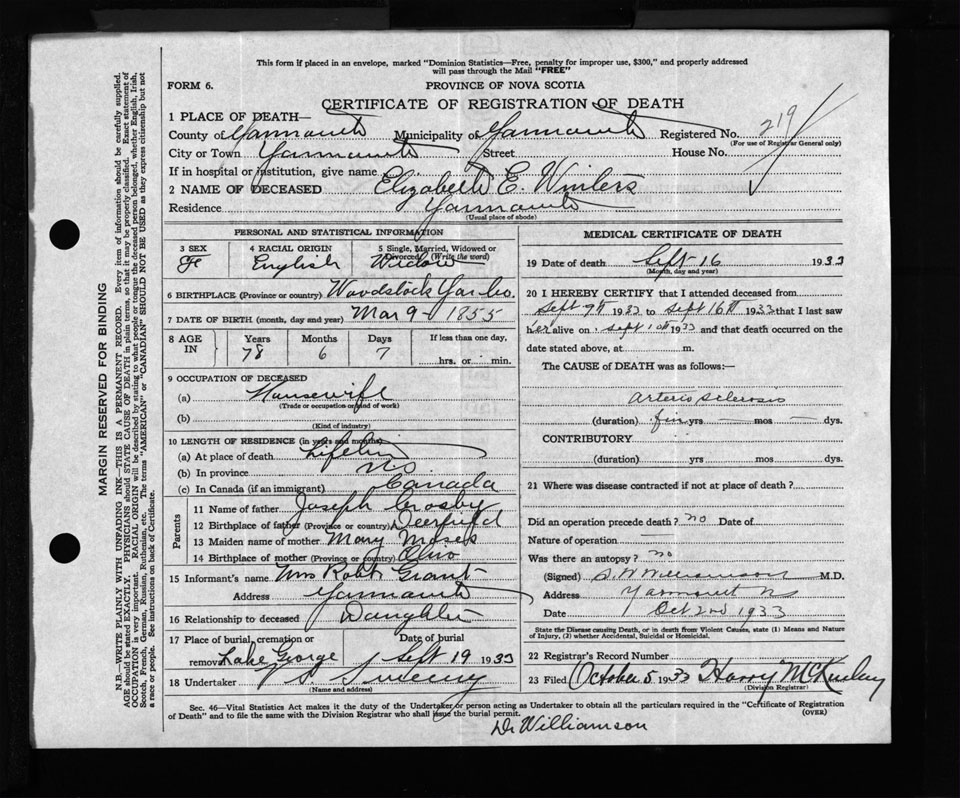 This form if placed in an envelope, marked "Dominion Statistics—Free, penalty for improper use, $300," and properly addressed
will pass through the Mail "FREE"
FORM 6.
PROVINCE OF NOVA SCOTIA
CERTIFICATE OF REGISTRATION OF DEATH
1 PLACE OF DEATH—
County of Yarmouth Municipality of Yarmouth Registered No. 219
(For use of Registrar General only)
City or Town Yarmouth Street House No.
If in hospital or institution, give name
2 NAME OF DECEASED Elizabeth E. Winters
Residence Yarmouth
(Usual place of abode)
PERSONAL AND STATISTICAL INFORMATION
3 SEX 4 RACIAL ORIGIN 5 Single, Married, Widowed or Divorced (Write the word)
Fe English Widow
6 BIRTHPLACE (Province or country) Woodstock Yar Co.
7 DATE OF BIRTH (month, day and year) Mar 9 - 1855
8 AGE IN Years Months Days If less than one day,
78 6 7 hrs. or min.
9 OCCUPATION OF DECEASED
(a) Housewife
(Trade or occupation or kind of work)
(b)
(Kind of industry)
10 LENGTH OF RESIDENCE (in years and months)
(a) At place of death
(b) In province NS
(c) In Canada (if an immigrant) Canada
Parents
11 Name of father Joseph Crosby
12 Birthplace of father (Province or country) Deerfield
13 Maiden name of mother Mary Moses
14 Birthplace of mother (Province or country) Ohio
15 Informant's name Mrs Robt Grant
Address Yarmouth
16 Relationship to deceased Daughter
17 Place of burial, cremation or removal Lake George Date of burial Sept 19 1933
18 Undertaker V S Sweeny
(Name and address)
MEDICAL CERTIFICATE OF DEATH
19 Date of death Sept-16 1933
(Month, day and year)
20 I HEREBY CERTIFY that I attended deceased from
Sept 9th 1933 to Sept 16th 1933 that I last saw
her alive on Sept 1933 and that death occurred on the
date stated above, at m.
The CAUSE OF DEATH was as follows:—
arterio sclerosis
(duration) yrs — mos — dys.
CONTRIBUTORY
(duration) yrs mos dys.
21 Where was disease contracted if not at place of death?
Did an operation precede death? no Date of
Nature of operation —
Was there an autopsy? no
(Signed) S. W Williamson M.D.
Address Yarmouth NS
Date Oct 2nd 1933
State the Disease causing Death, or in death from Violent Causes, state (1) Means and Nature
of Injury, (2) whether Accidental, Suicidal or Homicidal.
22 Registrar's Record Number
23 Filed October 5 1933 Harry McKinley
(Division Registrar)
Sec. 46—Vital Statistics Act makes it the duty of the Undertaker or person acting as Undertaker to obtain all the particulars required in the "Certificate of Registration
of Death" and to file the same with the Division Registrar who shall issue the burial permit. (OVER)
Dr Williamson
MARGIN RESERVED FOR BINDING
N.B.—WRITE PLAINLY WITH UNFADING INK—THIS IS A PERMANENT RECORD. Every item of information should be carefully supplied.
AGE should be stated EXACTLY. PHYSICIANS should STATE CAUSE OF DEATH in plain terms, so that it may be properly classified. Exact statement of
OCCUPATION is very important. RACIAL ORIGIN will be described by stating to what people or tongue the deceased person belonged, whether English, Irish,
Scotch, French, German, Russian, Ruthenian, etc. The terms "AMERICAN" or "CANADIAN" SHOULD NOT BE USED as they express citizenship but not
a race or people. See instructions on back of Certificate.